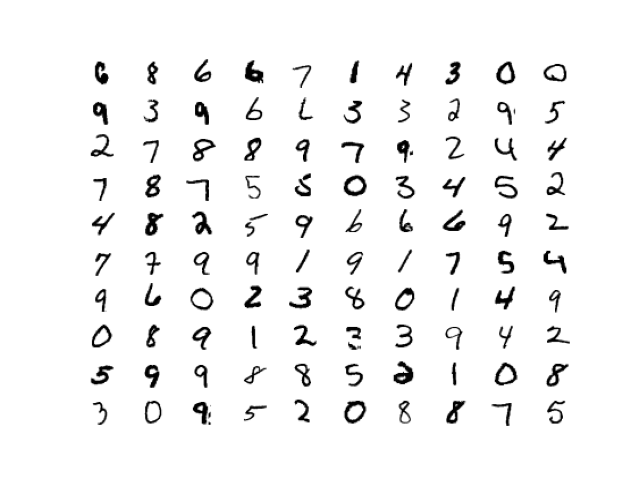 6 8 6 6 7 1 4 3 0 0
9 3 9 6 6 3 3 2 9 5
2 7 8 8 9 7 9 2 4 4
7 8 7 5 5 0 3 4 5 2
4 8 2 5 9 6 6 6 9 2
7 7 9 9 1 9 1 7 5 4
9 6 0 2 3 8 0 1 4 9
0 8 9 1 2 3 3 9 4 2
5 9 9 8 8 5 2 1 0 8
3 0 9 5 2 0 8 8 7 5